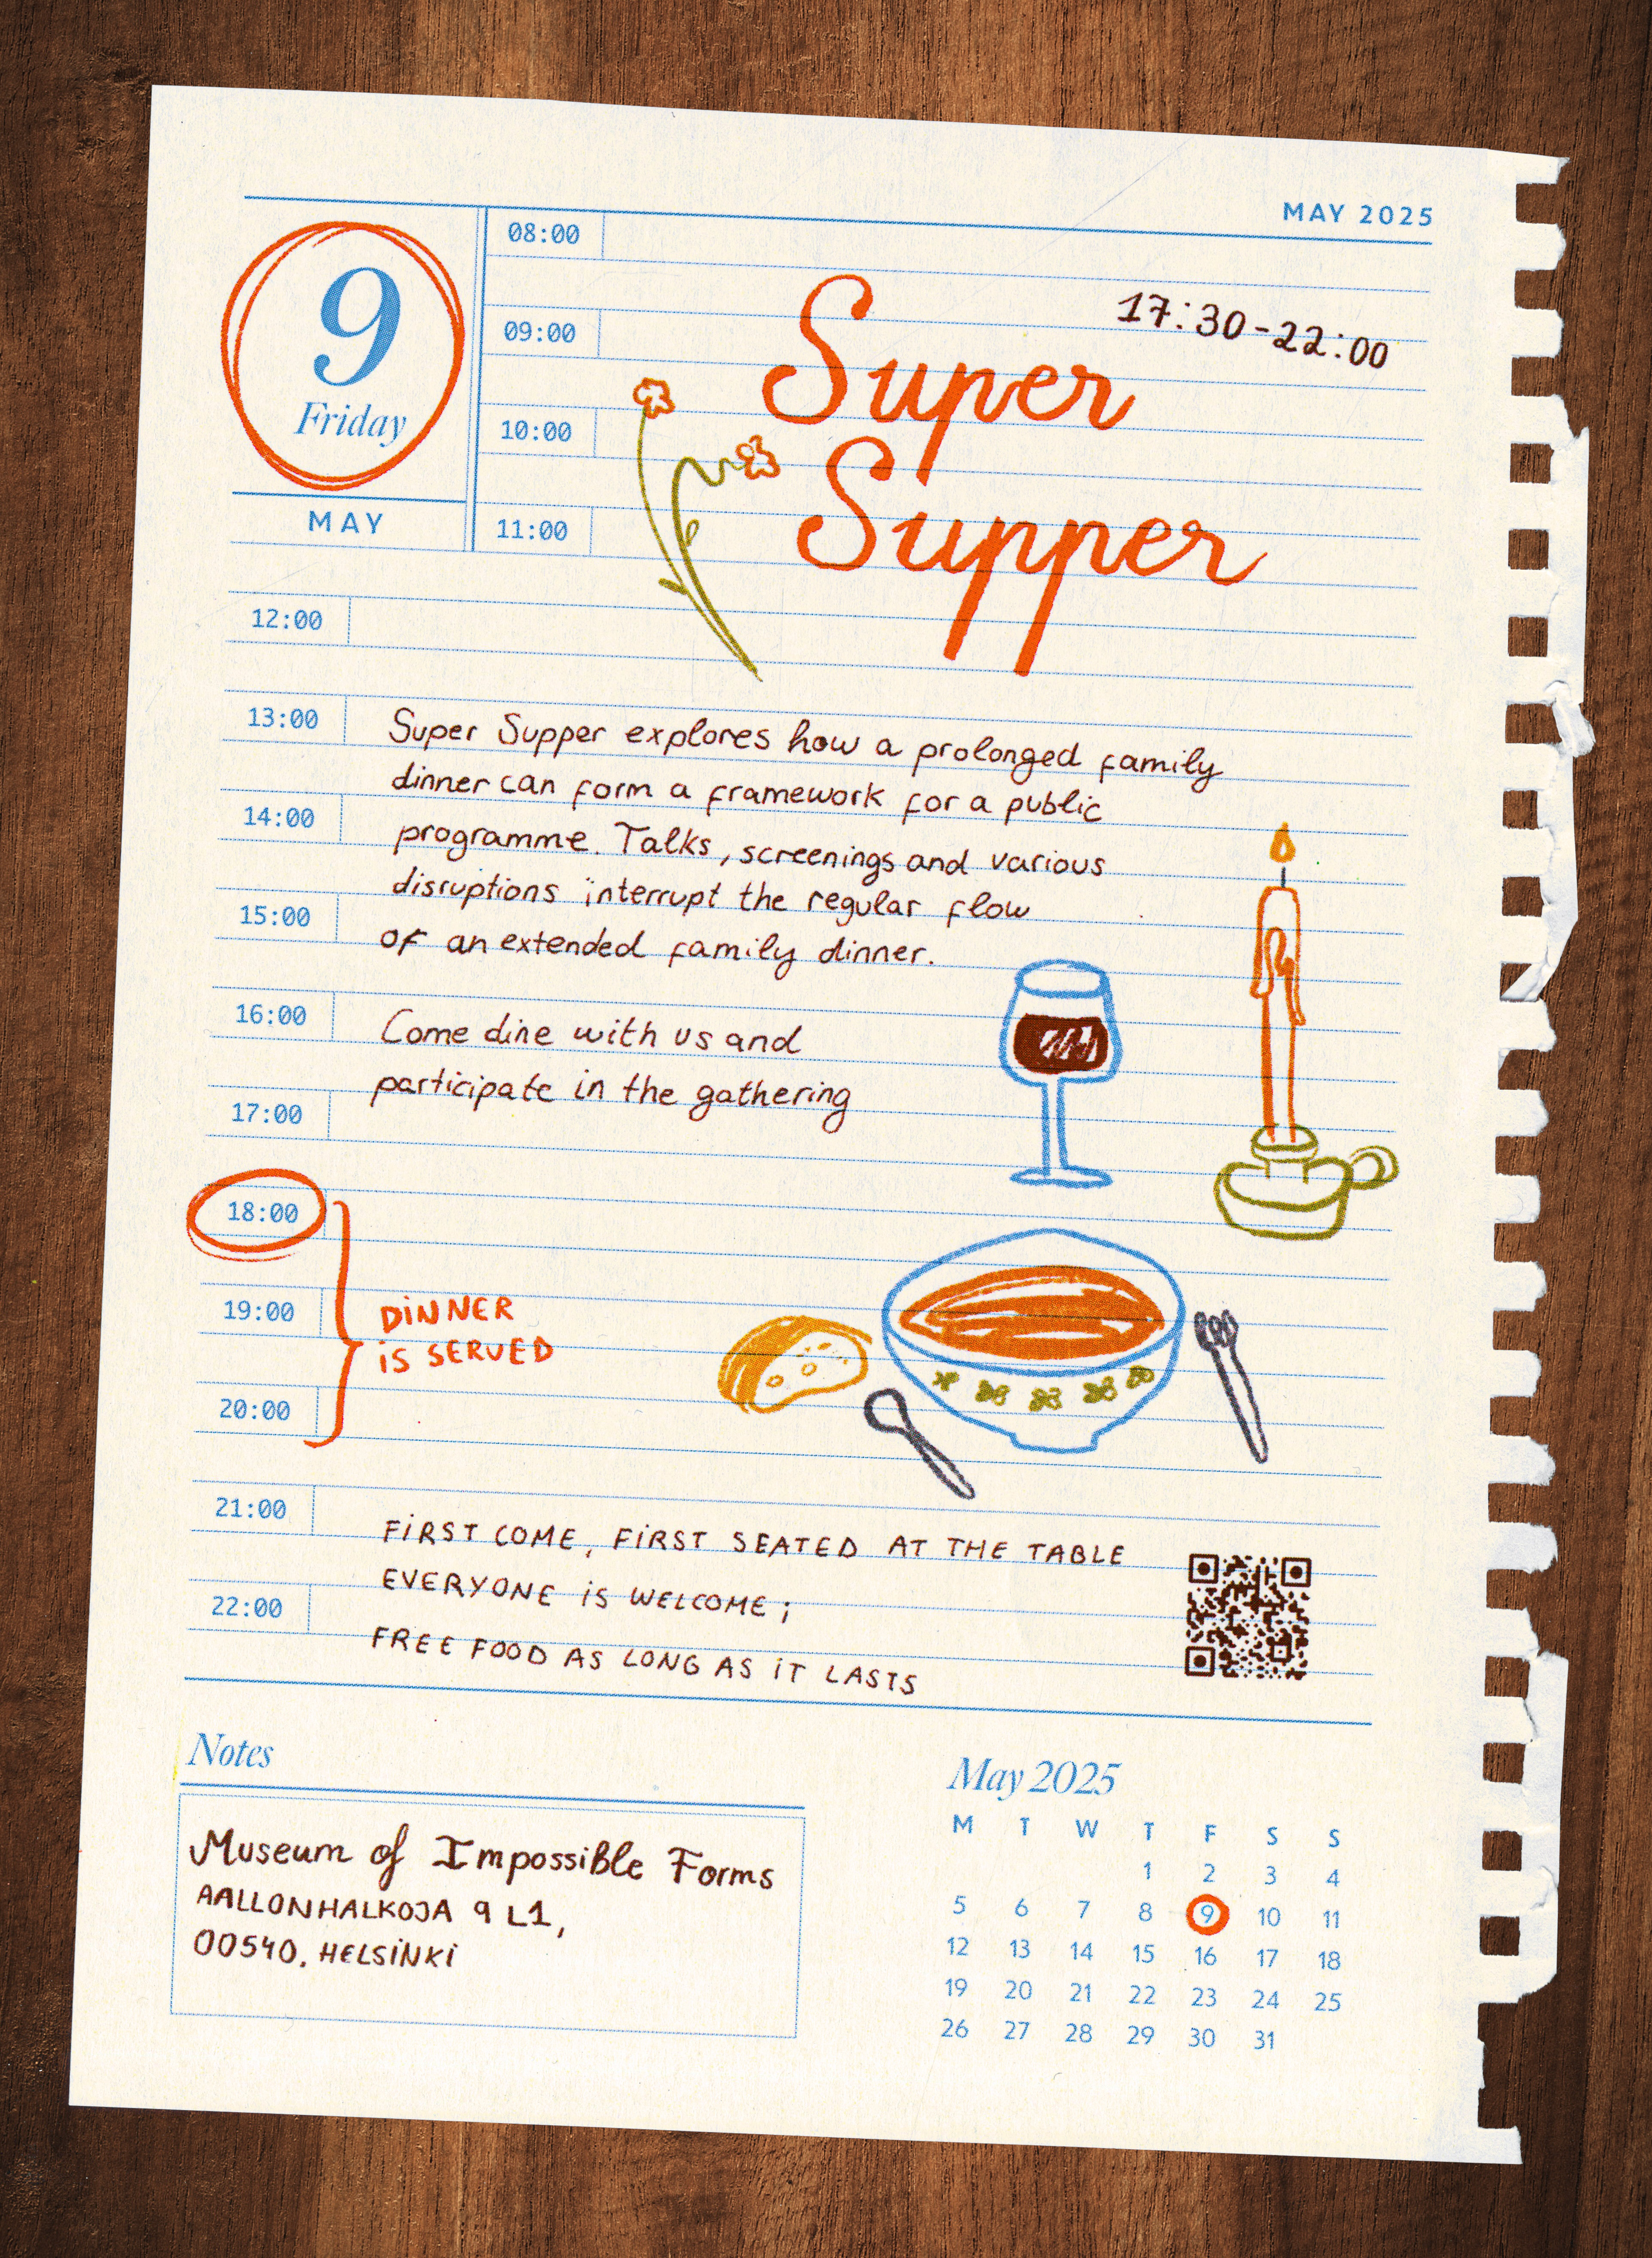 MAY 2025
9
Friday
MAY
08:00
09:00
10:00
11:00
17:30-22:00
Super
Supper
12:00
13:00
Super Supper explores how a prolonged family
dinner can form a framework for a public
14:00
programme. Talks, screenings and various
disruptions interrupt the regular flow
15:00
of an extended family dinner.
16:00
Come dine with us and
participate in the gathering
17:00
18:00
19:00
DINNER
IS SERVED
20:00
21:00
FIRST COME, FIRST SEATED AT THE TABLE
EVERYONE IS WELCOME;
22:00
FREE FOOD AS LONG AS IT LASTS
Notes
Museum of Impossible Forms
AALLONHALKOJA 9 L1,
00540, HELSINKI
May 2025
M T W T F S S
1 2 3 4
5 6 7 8 9 10 11
12 13 14 15 16 17 18
19 20 21 22 23 24 25
26 27 28 29 30 31